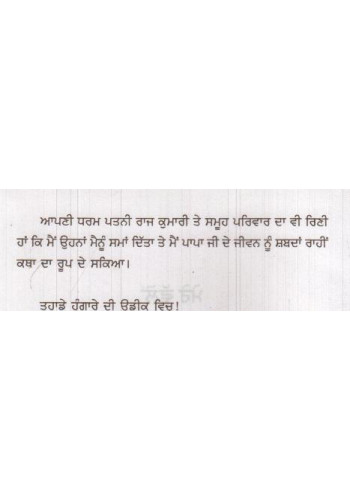 ਆਪਣੀ ਧਰਮ ਪਤਨੀ ਰਾਜ ਕੁਮਾਰੀ ਤੇ ਸਮੂਹ ਪਰਿਵਾਰ ਦਾ ਵੀ ਰਿਣੀ
ਹਾਂ ਕਿ ਮੈਂ ਉਹਨਾਂ ਮੈਨੂੰ ਸਮਾਂ ਦਿੱਤਾ ਤੇ ਮੈਂ ਪਾਪਾ ਜੀ ਦੇ ਜੀਵਨ ਨੂੰ ਸ਼ਬਦਾਂ ਰਾਹੀਂ
ਕਥਾ ਦਾ ਰੂਪ ਦੇ ਸਕਿਆ।
ਤਹਾਡੇ ਹੰਗਾਰੇ ਦੀ ਉਡੀਕ ਵਿਚ!